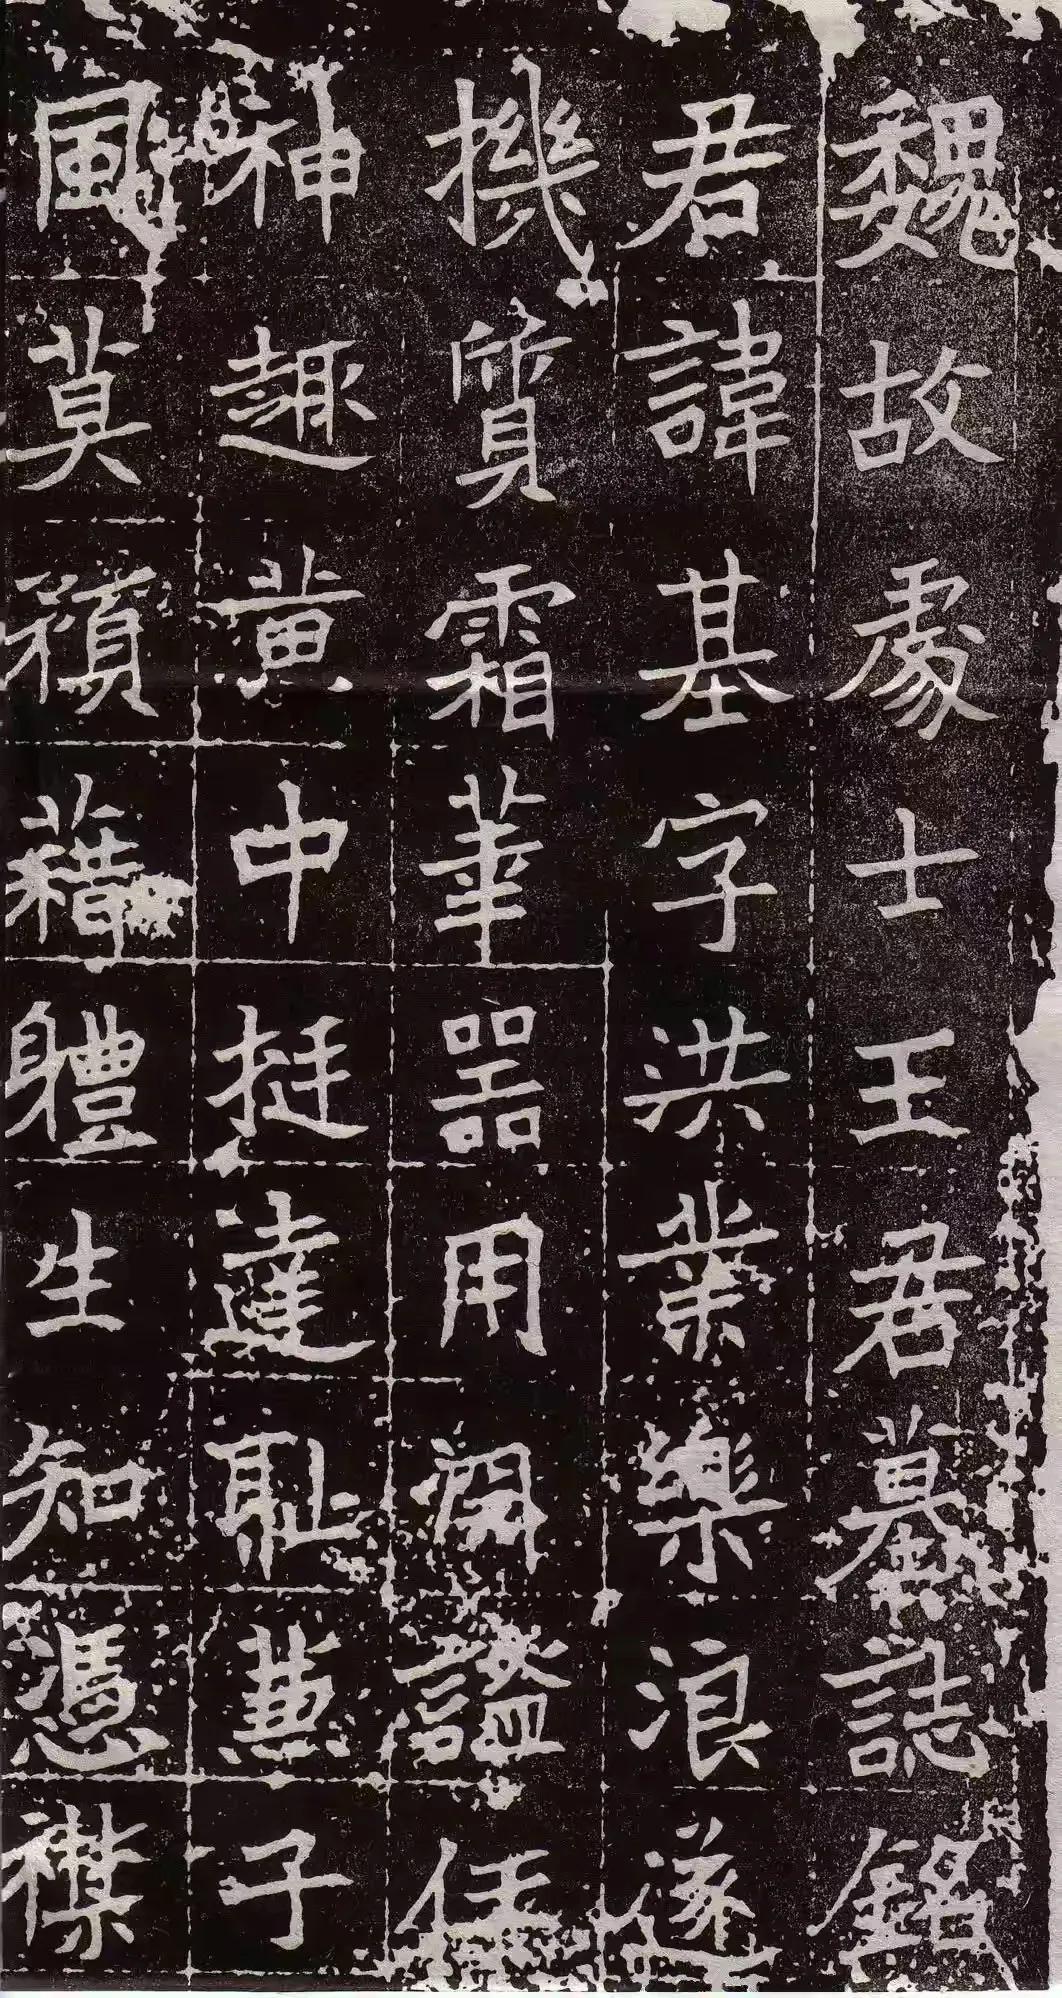 魏故處士王君墓誌銘
君諱基字洪業樂浪遂
機質霜華器用閑謐任
神趣黃中挺達耽兼子
風莫頹藉體生知憑襟